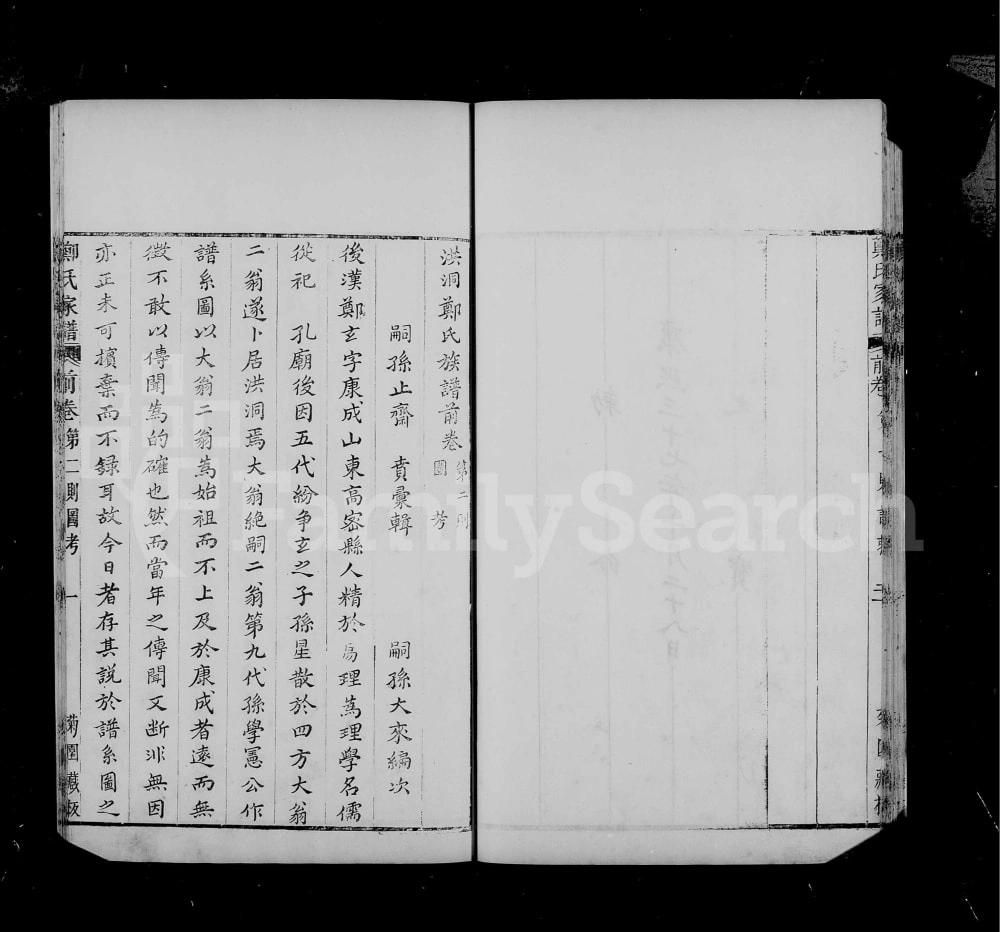 洪洞鄭氏族譜前卷 第二則圖考
嗣孫止齋 賁彙輯 嗣孫大來編次
後漢鄭玄字康成山東高密縣人精於易理蔿理學名儒
從祀 孔廟後因五代紛争玄之子孫星散於四方大翁
二翁遂卜居洪洞焉大翁絶嗣二翁第九代孫學憲公作
譜系圖以大翁二翁蔿始祖而不上及於康成者遠而無
徵不敢以傳聞蔿的確也然而當年之傳聞又断非無因
亦正未可擯棄而不録耳故今日者存其説於譜系圖之
鄭氏家譜 前卷 第二則圖考 一 菊圃藏板
FamilySearch